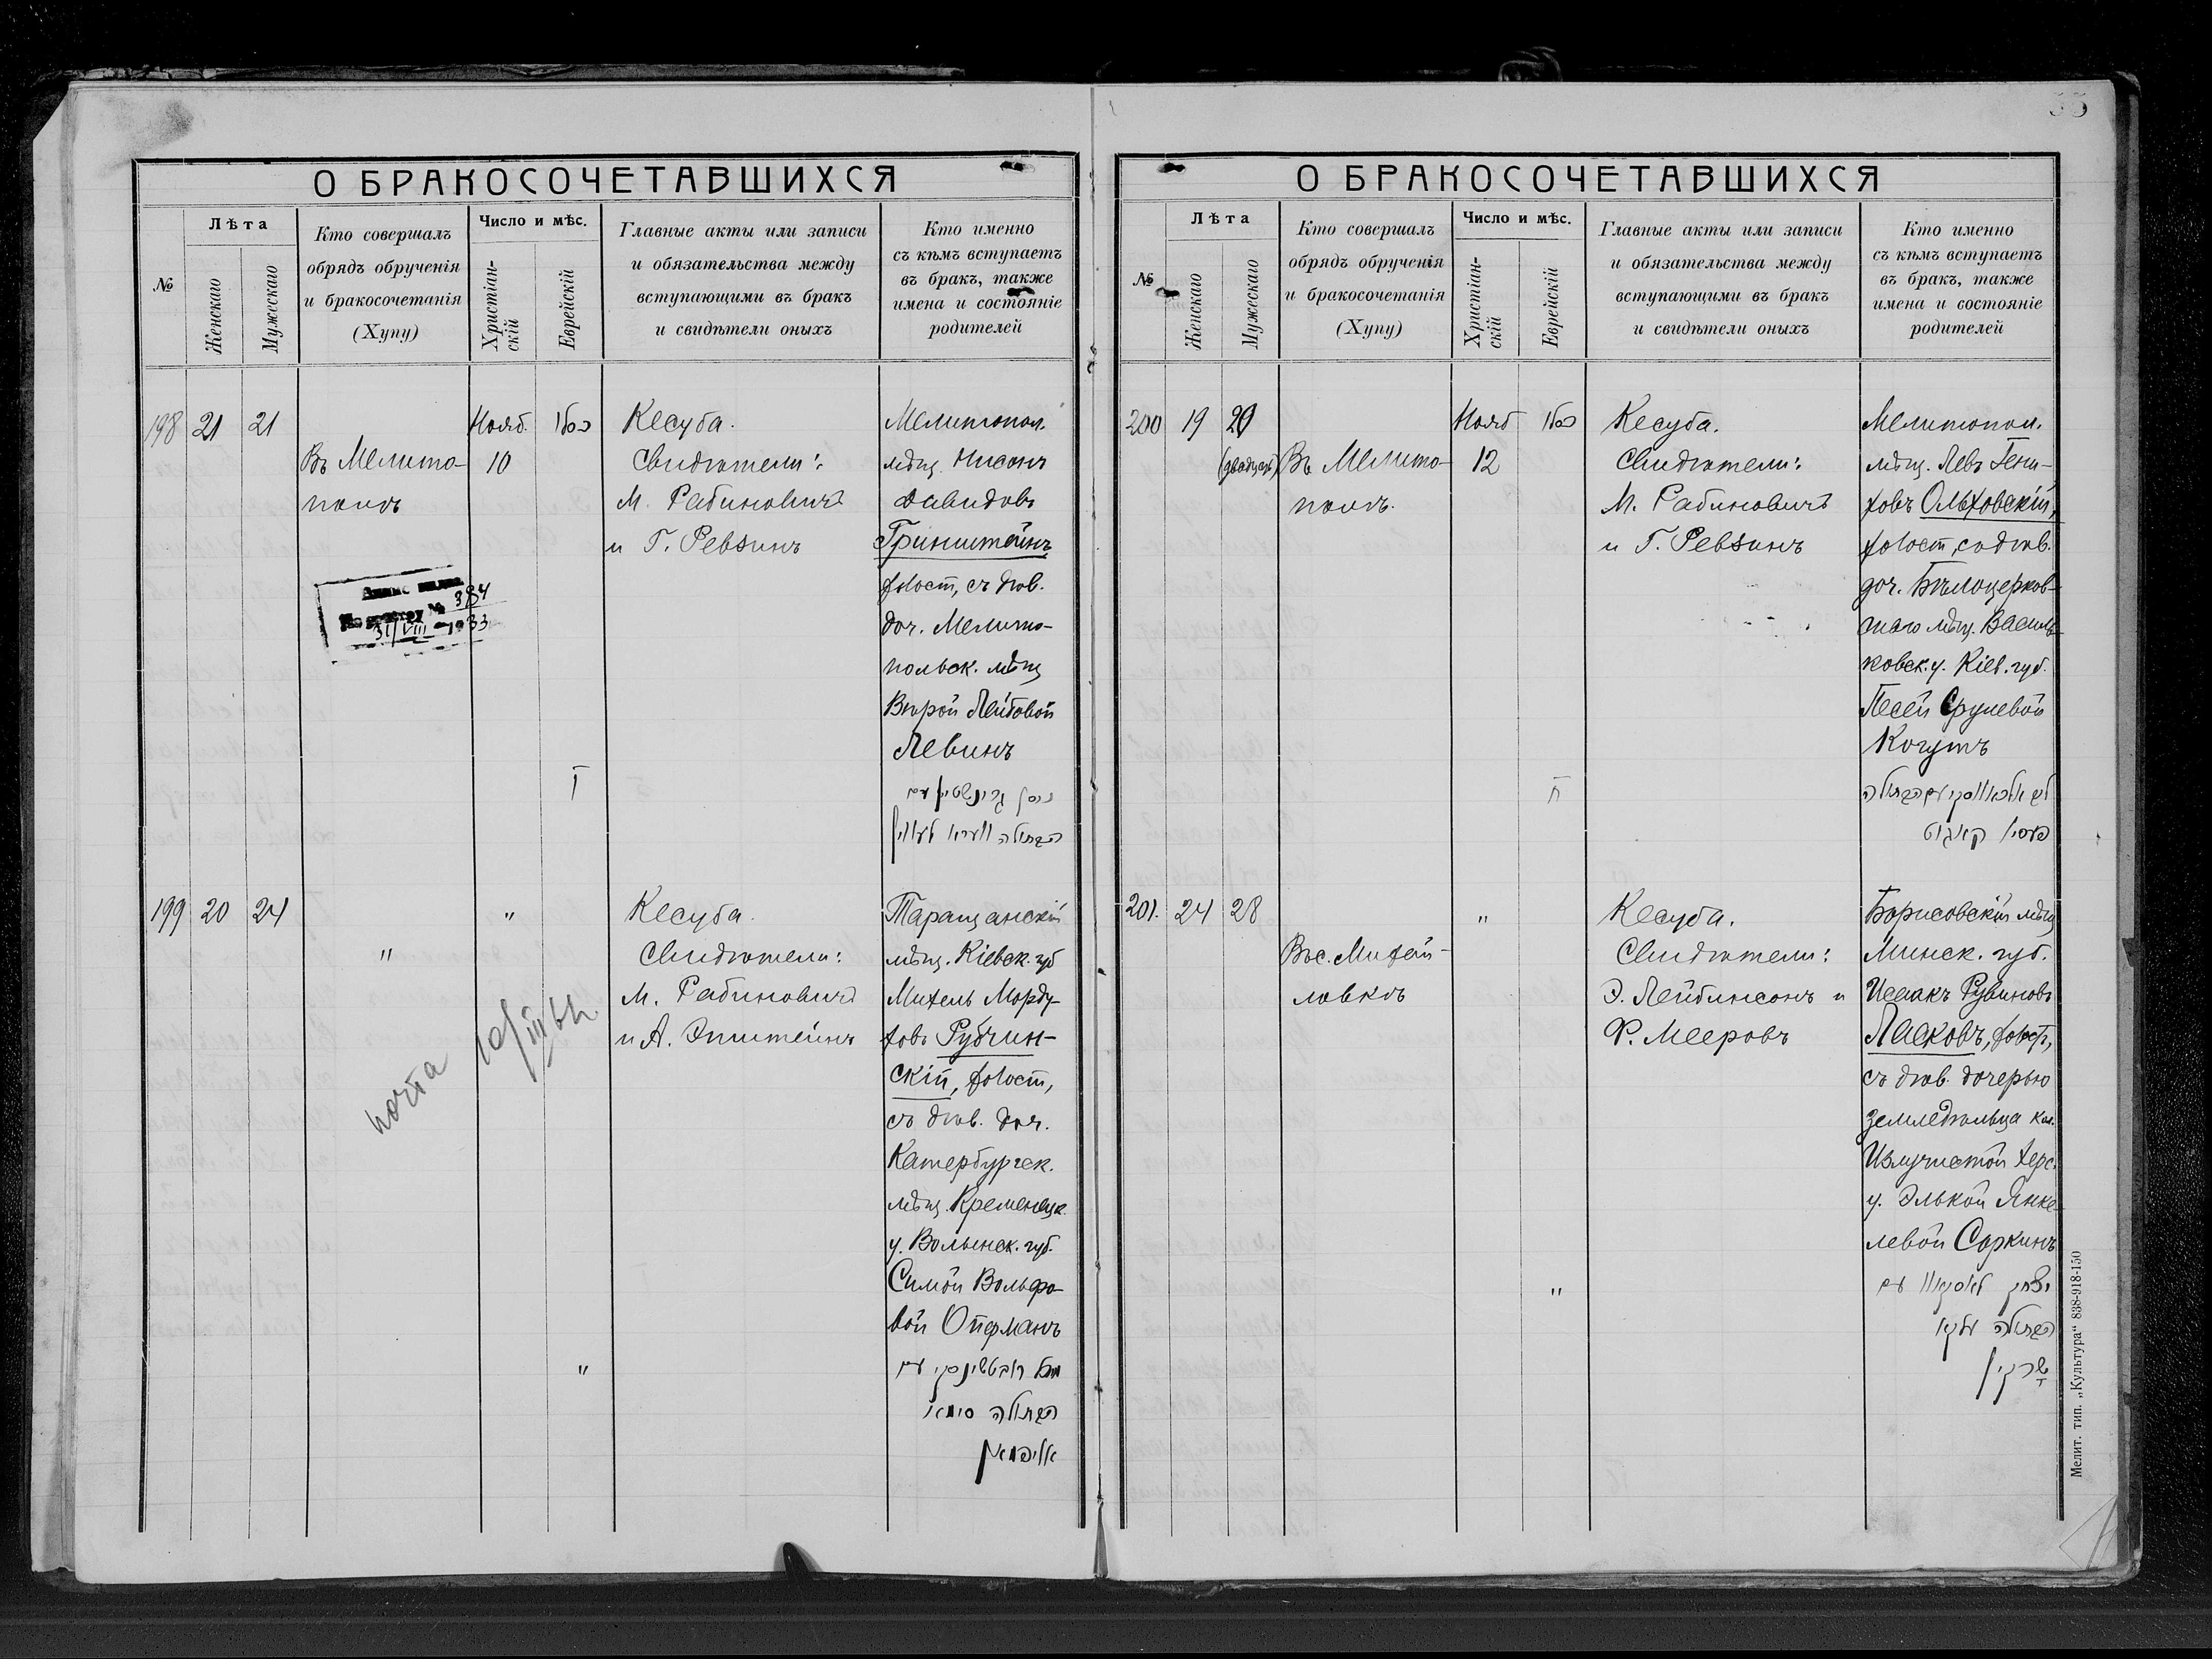 О БРАКОСОЧЕТАВШИХСЯ
№
Лѣта
Женскаго
Мужескаго
Кто совершалъ
обрядъ обрученія
и бракосочетанія
(Хупу)
Число и мѣс.
Христіан-
скій
Еврейскій
Главные акты или записи
и обязательства между
вступающими въ бракъ
и свидѣтели оныхъ
Кто именно
съ кѣмъ вступаетъ
въ бракъ, также
имена и состояніе
родителей
198 21 21
Въ Мелито-
полѣ
Нояб.
10
כסלו
ד
Кесуба.
Свидѣтели:
М. Рабиновичъ
и Г. Ревзинъ
Мелитопол.
мѣщ. Нисонъ
Давидовъ
Гринштейнъ
холост, съ дѣв.
доч. Мелито-
польск. мѣщ
Вѣрой Лейбовой
Левинъ
ניסן גרינשטיין עם
הבתולה ווערא לעווין
По реестру № 384
31/VIII-1933
199 20 24
"
"
"
Кесуба.
Свидѣтели:
М. Рабиновичъ
и А. Эпштейнъ
Таращанскій
мѣщ. Кіевск. губ
Михель Морду-
ховъ Рубчин-
скій, холост,
съ дѣв. доч.
Катербургск.
мѣщ. Кременецк.
у. Волынск. губ.
Симой Вольфо-
вой Опфманъ
עם
הבתולה סימא
почта 10/III 44
О БРАКОСОЧЕТАВШИХСЯ
№
Лѣта
Женскаго
Мужескаго
Кто совершалъ
обрядъ обрученія
и бракосочетанія
(Хупу)
Число и мѣс.
Христіан-
скій
Еврейскій
Главные акты или записи
и обязательства между
вступающими въ бракъ
и свидѣтели оныхъ
Кто именно
съ кѣмъ вступаетъ
въ бракъ, также
имена и состояніе
родителей
200 19 20
(двадцать)
Въ Мелито-
полѣ.
Нояб
12
כסלו
Кесуба.
Свидѣтели:
М. Рабиновичъ
и Г. Ревзинъ
Мелитопол.
мѣщ. Левъ Гени-
ховъ Ольховскій,
холост, съ дѣв.
доч. Бѣлоцерков-
скаго мѣщ. Василь-
ковск. у. Кіев. губ.
Песей Срулевой
Когутъ
לב אלכאווסקי עם הבתולה
פעסי קאגוט
201. 24 28
Въ с. Михай-
ловкѣ
"
"
Кесуба.
Свидѣтели:
Э. Лейбинсонъ и
Ф. Мееровъ
Борисовскій мѣщ
Минск. губ.
Исаакъ Рувиновъ
Ласковъ, холост,
съ дѣв. дочерью
земледѣльца кол.
Излучистой Херс.
у. Элькой Янке-
левой Соркинъ
יצחק לאסקאוו עם
הבתולה עלקא
שרקין
Мелит. тип. „Культура“ 838-918-150